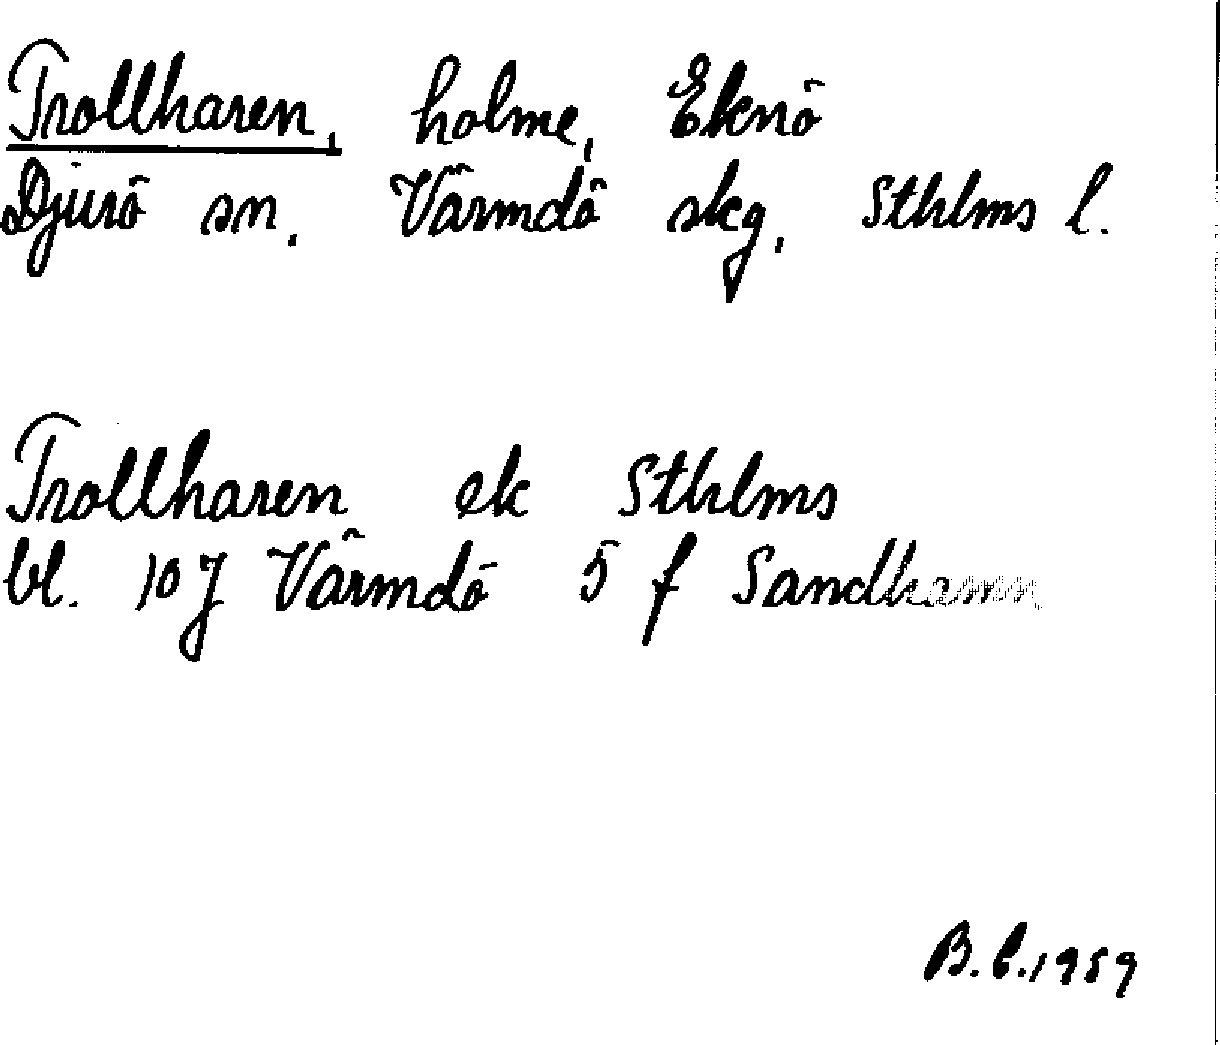 Trollharen, holme, Eknö
Djurö sn, Värmdö skg, Sthlms l.
Trollharen ek Sthlms
bl. 10 J Värmdö 5 f Sandhamn
B.C.1959